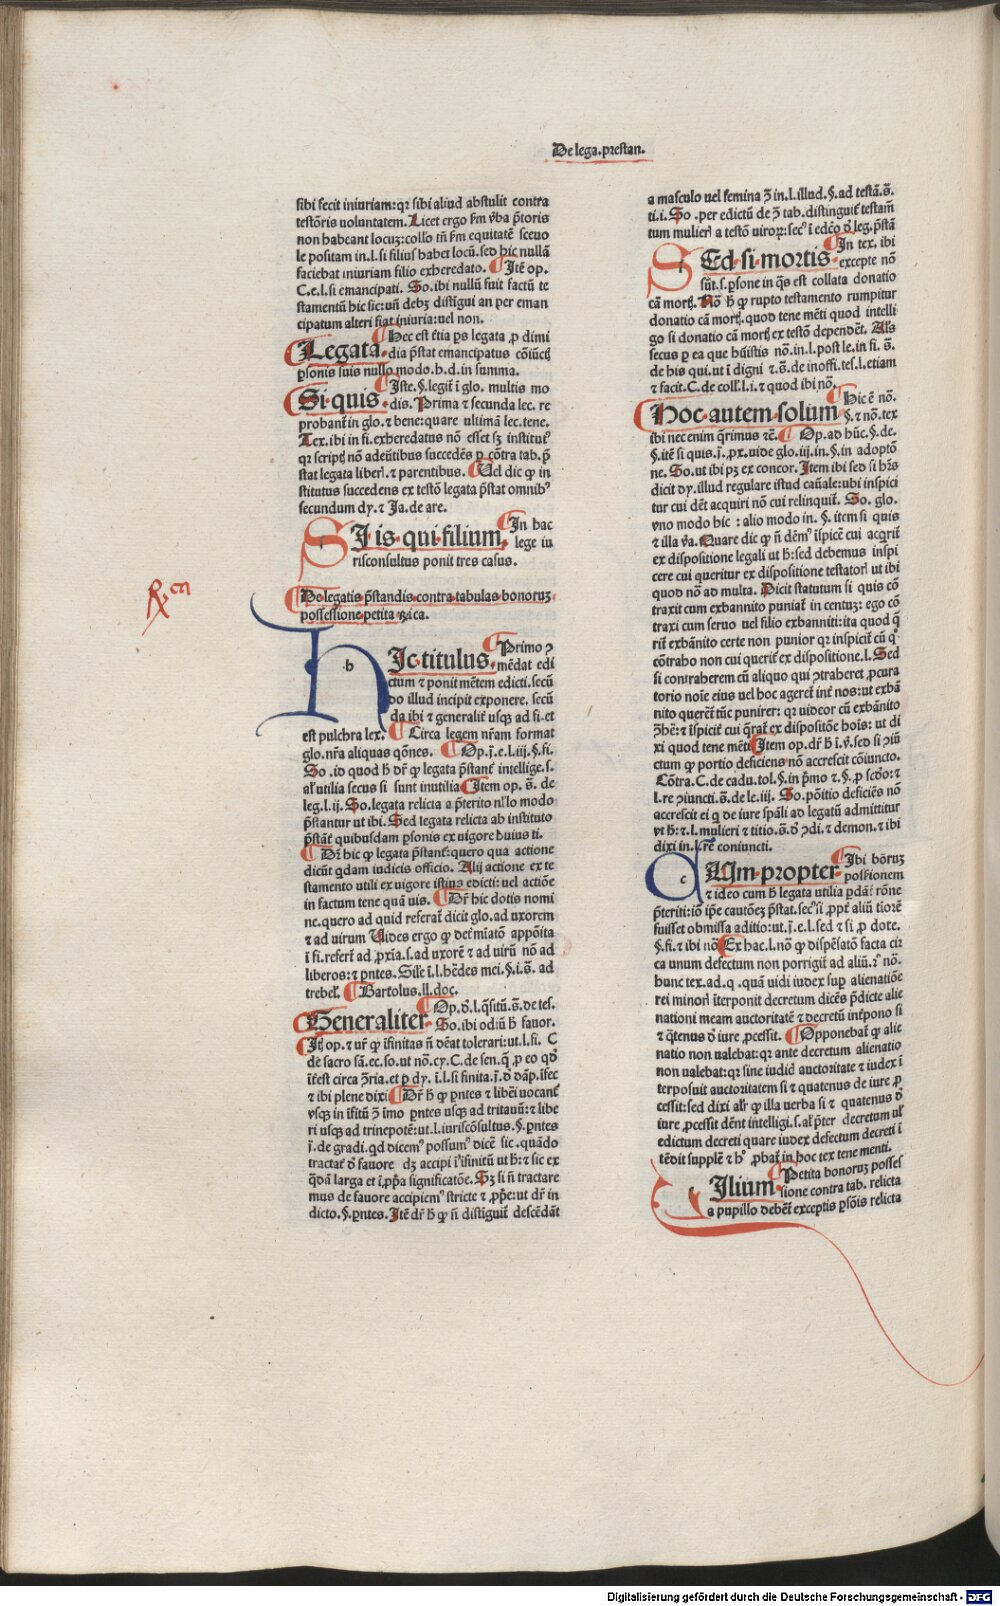 De lega.prestan.
sibi fecit iniuriam:qꝛ sibi aliud abstulit contra
testōris uoluntatem. Licet ergo fm v̄ba p̄toris
non habeant locuꝫ:collo tn̄ fm equitatē sceuo
le positam in.l.si filius habet locū.sed hic nullā
faciebat iniuriam filio exheredato. Itē op.
C.e.l.si emancipati. So.ibi nullū fuit factū te
stamentū hic sic:un̄ debꝫ distīgui an per eman
cipatum alteri fiat iniuria:uel non.
Hec est ētia p̱s legata ꝓ dimi
Legata. dia p̄stat emancipatus cōiūctꝭ
p̱sonis suis nullo modo.h.d.in summa.
Iste.§.legit̄ ī glo. multis mo
Si quis. dis. Prima ⁊ secunda lec. re
probant̄ in glo.⁊ bene:quare ultimā lec.tene.
Tex.ibi in fi.exheredatus nō esset sꝫ institutꝰ
qꝛ scriptꝭ nō adeūtibus succedēs p̱ cōtra tab.p̄
stat legata liberꝭ.⁊ parentibus. Uel dic ꝙ in
stitutus succedens ex testō legata p̄stat omnibꝰ
secundum dy.⁊ Ja.de are.
In hac
SI is qui filium. lege iu
risconsultus ponit tres casus.
De legatis p̄standis contra tabulas bonoruꝫ
possessione petita Rica.
Rͣcͣ
.h
HIc titulus. Primo ꝯ
mēdat edi
ctum ⁊ ponit mētem edicti.secū
do illud incipit exponere. secū
da ibi ⁊ generalit̄ usqꝫ ad fi.et
est pulchra lex. Circa legem nr̄am format
glo.nr̄a aliquas qōnes. Op.j̄.e.l.iij.§.fi.
So.id quod h̄ dr̄ ꝙ legata p̄stant̄ intellige.s.
al̄ utilia secus si sunt inutilia Item op.s̄.de
leg.l.ij. So.legata relicta a p̄terito nl̄lo modo
p̄stantur ut ibi. Sed legata relicta ab instituto
p̄stāt̄ quibusdam p̱sonis ex uigore huius ti.
Dr̄ hic ꝙ legata p̄stant̄:quero qua actione
dicūt qdam iudicis officio. Alij actione ex te
stamento utili ex uigore istius edicti: uel actiōe
in factum tene quā uis. Dr̄ hic dotis nomi
ne.quero ad quid referat̄ dicit glo.ad uxorem
⁊ ad uirum Uides ergo ꝙ det̄mīatō appōita
ī fi.refert̄ ad ꝓxīa.s.ad uxorē ⁊ ad uirū nō ad
liberos:⁊ p̱ntes. Sil̄e ī.l.hēdes mei.§.i.s̄. ad
trebel̄. Bartolus.ll.doc.
Op.d̄.l.q̄sitū.s̄.de tes.
Generaliter. So.ibi odiū h̄ fauor.
Itꝫ op.⁊ ur̄ ꝙ īfinitas n̄ dēat tolerari:ut.l.fi. C
de sacro sā.ec.so.ut nō.cy.C.de sen.q̄ ꝓ eo qd̄
īt̄est circa ꝯ̄ria.et p̱ dy. ī.l.si finita.j̄.d̄ dāp.īfec
⁊ ibi plene dixi Dr̄ h̄ ꝙ p̱ntes ⁊ libēi uocant̄
vsqꝫ in īfitū ꝯ̄ imo p̱ntes usqꝫ ad tritauū:⁊ libe
ri usqꝫ ad trinepotē:ut.l.iuriscōsultus.§.p̱ntes
j̄.de gradi.qd dicemꝰ possumꝰ dicē sic .quādo
tractat̄ d̄ fauore dꝫ accipi ī īfinitū ut h̄:⁊ sic ex
q̄dā larga et īꝓp̱a significatōe. Sꝫ si n̄ tractare
mus de fauore accipiemꝰ stricte ⁊ ꝓp̱e:ut dr̄ in
dicto.§.p̱ntes. Itē dr̄ h̄ ꝙ n̄ distīguit̄ descēdāt
a masculo uel femina ꝯ̄ in.l.illud.§.ad testā.s̄.
ti.i. So .per edictū de ꝯ̄ tab.distinguit̄ testam̄
tum mulierꝭ a testō uiroꝝ:secꝰ ī edc̄o d̄ leg.p̄stā
In tex. ibi
SEd si mortis. excepte nō
sūt.s.p̱sone in q̄s est collata donatio
cā mortꝭ. Nō h̄ ꝙ rupto testamento rumpitur
donatio cā mortꝭ.quod tene mēti quod intelli
go si donatio cā mortꝭ ex testō dependēt. Al̄s
secus p̱ ea que hūistis nō.in.l.post le.in fi. s̄.
de his qui.ut ī digni ⁊.s̄.de inoffi.tes.l.etiam
⁊ facit.C.de coll̄.l.i.⁊ quod ibi nō.
Hic ē nō.
Hoc autem solum §.⁊ nō.tex
ibi nec enim q̄rimus ꝛc̄. Op.ad hūc.§.de.
§.itē si quis.j̄.ꝓx.uide glo.iij.in.§.in adoptō
ne. So.ut ibi pꝫ ex concor. Item ibi sed si hr̄s
dicit dy.illud regulare istud cāuale:ubi inspici
tur cui dēt acquiri nō cui relinquit̄. So. glo.
vno modo hic : alio modo in. §. item si quis
⁊ illa v̄a. Quare dic ꝙ n̄ dēmꝰ īspicē cui acqrit̄
ex dispositione legali ut h̄:sed debemus īnspi
cere cui queritur ex dispositione testatorꝭ ut ibi
quod nō ad multa. Dicit statutum si quis cō
traxit cum exbannito puniat̄ in centuꝫ: ego cō
traxi cum seruo uel filio exbanniti:ita quod q̄
rit̄ exbānito certe non punior qꝛ inspicit̄ cū qꝰ
cōtrabo non cui querit̄ ex dispositione.l. Sed
si contraherem cū aliquo qui ꝯtraheret ꝓcura
torio noīe eius uel hoc ageret̄ int̄ nos:ut exbā
nito querēt̄ tūc punirer: qꝛ uideor cū exbānito
ꝯ̄hē:⁊ īspicit̄ cui q̄rat̄ ex dispositiōe hoīs: ut di
xi quod tene mēti Item op.dr̄ h̄ ī.v̄.sed si ꝯiū
ctum ꝙ portio deficiens nō accrescit cōiuncto.
Cōtra.C.de cadu.tol.§.in p̄mo ⁊.§.ꝓ scd̄o:⁊
l.re ꝯiuncti.s̄.de le.iij. So.pōitio deficiēs nō
accrescit ei q de iure sp̱āli ad legatū admittitur
vt h̄:⁊.l.mulieri ⁊ titio.s̄.d̄ ꝯdi.⁊ demon.⁊ ibi
dixi in.l.re coniuncti.
Ibi bōruꝫ
c
CUm propter. possessionem
⁊ ideo cum h̄ legata utilia p̱dat̄ rōne
p̄teriti:iō ip̄e cautōeꝫ p̄stat.secꝰ si ꝓpt̄ aliū tiorē
fuisset obmissa aditio:ut.j̄.e.l.sed ⁊ si ꝓ dote.
§.fi.⁊ ibi nō Ex hac.l.nō ꝙ dispēsatō facta cir
ca unum defectum non porrigit̄ ad aliū.rꝰ nō.
hunc tex.ad.q .quā uidi iudex sup̱ alienatiōe
rei minorꝭ īterponit decretum dicēs p̄dicte alie
nationi meam auctoritatē ⁊ decretū int̄pono si
⁊ q̄tenus d̄ iure ꝓcessit. Opponebat̄ ꝙ alie
natio non ualebat:qꝛ ante decretum alienatio
non ualebat:qꝛ sine iudicꝭ auctoritate ⁊ iudex ī
terposuit auctoritatem si ⁊ quatenus de iure ꝓ
cessit:sed dixi al̄r ꝙ illa uerba si ⁊ quatenus d̄
iure ꝓcessit dēnt intelligi.s.al̄ p̄ter decretum ul̄
edictum decreti quare iudex defectum decreti ī
tēdit supplē ⁊ hꝰ ꝓbat̄ in hoc tex tene menti.
Petita bonoruꝫ posses
FIlium. sione contra tab. relicta
a pupillo debēt̄ exceptis p̱sōis relicta
Digitalisierung gefördert durch die Deutsche Forschungsgemeinschaft - DFG